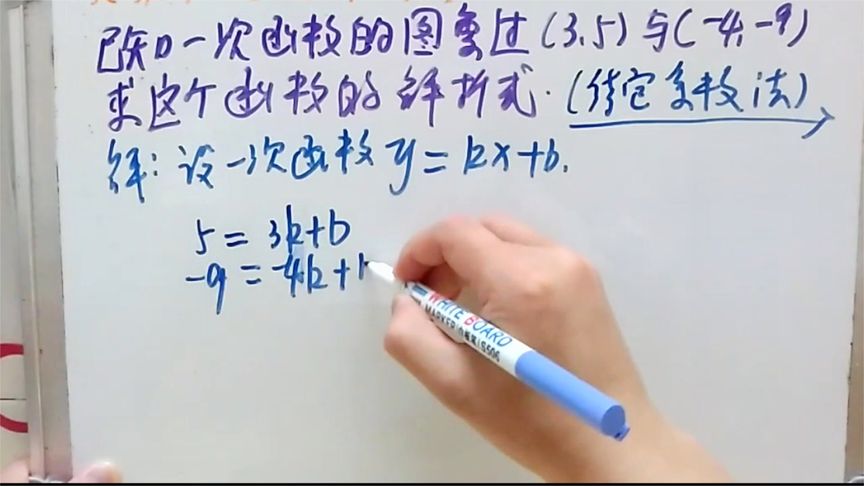 已知一次函数的图象过(3,5)与(-4,-9)
求这个函数的解析式.(待定系数法)
解:设一次函数y=kx+b.
5=3k+b
-9=-4k+
WHITE BOARD
MARKER